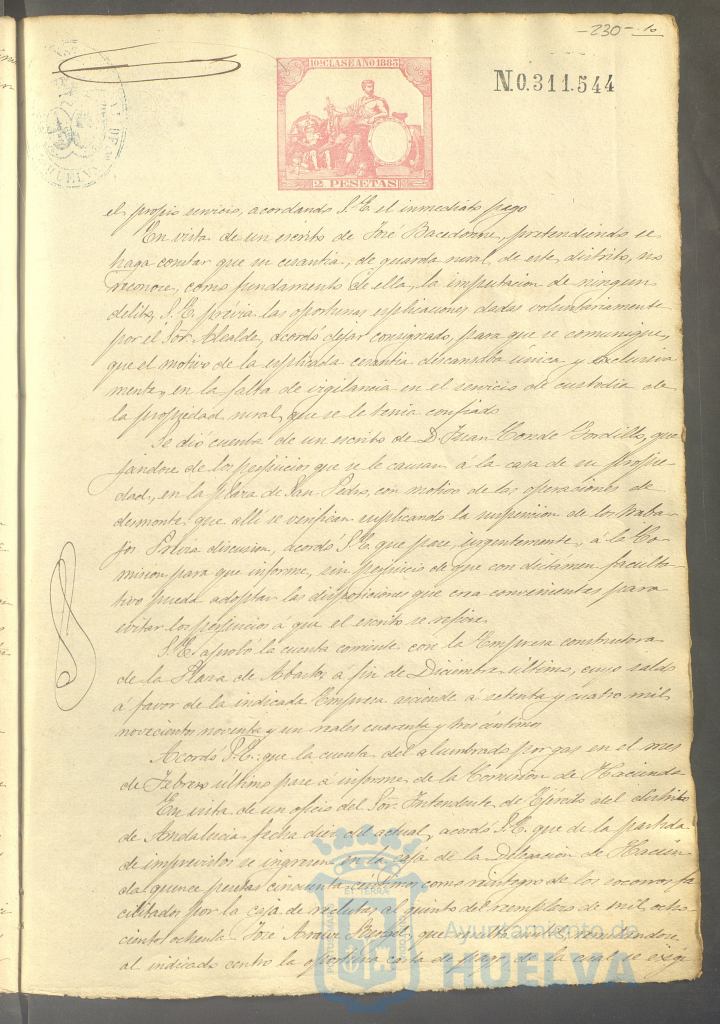 -230- 10
10ª CLASE AÑO 1883
N.0.311.544
2 PESETAS
HUELVA
el propio servicio, acordando S.E. el inmediato pago
En vista de un escrito de José Bacedonne, pretendiendo se
haga constar que su cesantia, de guarda rural, de este, distrito, no
reconoce, como fundamento de ella, la imputacion de ningun
delito, S.E. prévia las oportunas esplicaciones dadas voluntariamente
por el Sor. Alcalde, acordó dejar consignado, para que se comunique,
que el motivo de la esplicada cesantia descansaba única y esclusiva
mente, en la falta de vigilancia en el servicio de custodia de
la propiedad rural, que se le tenia confiado
Se dió cuenta de un escrito de D. Juan Conde Gordillo, que
jándose de los perjuicios que se le causan á la casa de su propie-
dad, en la plaza de San Pedro, con motivo de las operaciones de
desmonte que alli se verifican suplicando la suspension de los traba-
jos. Prévia discusion, acordó S.E. que pase, urgentemente, á la Co-
mision para que informe, sin perjuicio de que con dictamen faculta-
tivo pueda adoptar las disposiciones que crea convenientes para
evitar los perjuicios á que el escrito se refiere.
S.E. aprobó la cuenta corriente con la Empresa constructora
de la Plaza de Abastos á fin de Diciembre último, cuyo saldo
á favor de la indicada Empresa asciende á setenta y cuatro mil
novecientos noventa y un reales cuarenta y tres céntimos
Acordó S.E. que la cuenta del alumbrado por gas en el mes
de Febrero último pase á informe de la Comision de Hacienda
En vista de un oficio del Sor. Intendente de Ejército del distrito
de Andalucia fecha diez del actual, acordó S.E. que de la partida
de imprevistos se ingresen en la caja de la Delegacion de Hacien
da quince pesetas cincuenta céntimos como reintegro de los socorros fa
cilitados por la caja de reclutas al quinto del reemplazo de mil ocho
cientos ochenta José Arauz Bernal, que resultó inutil, rendiendose
al indicado centro la oportuna carta de pago, de la cual se exige
Ayuntamiento de
HUELVA